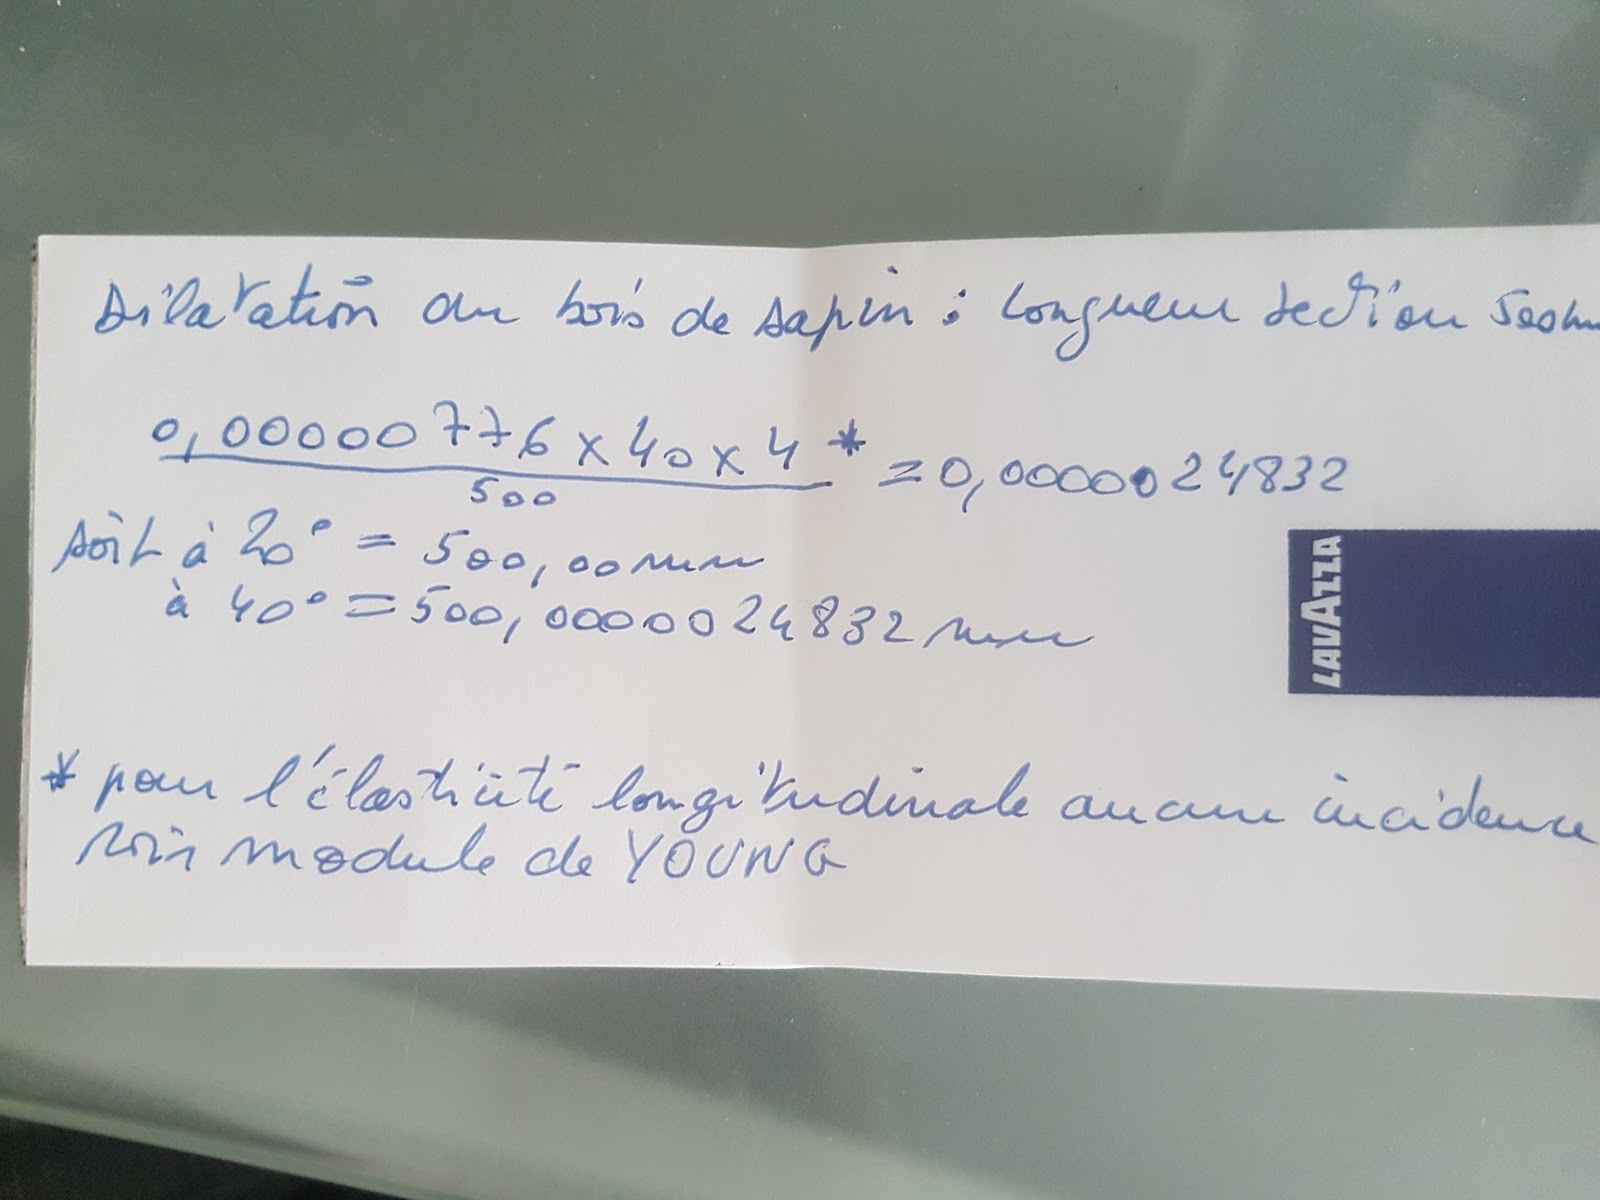 Dilatation du bois de sapin : longueur section 500mm
0,00000776 x 40 x 4 *
500
= 0,0000024832
soit à 20° = 500,00mm
à 40° = 500,0000024832 mm
LAVAZZA
* pour l'élasticité longitudinale aucune incidence
voir module de YOUNG